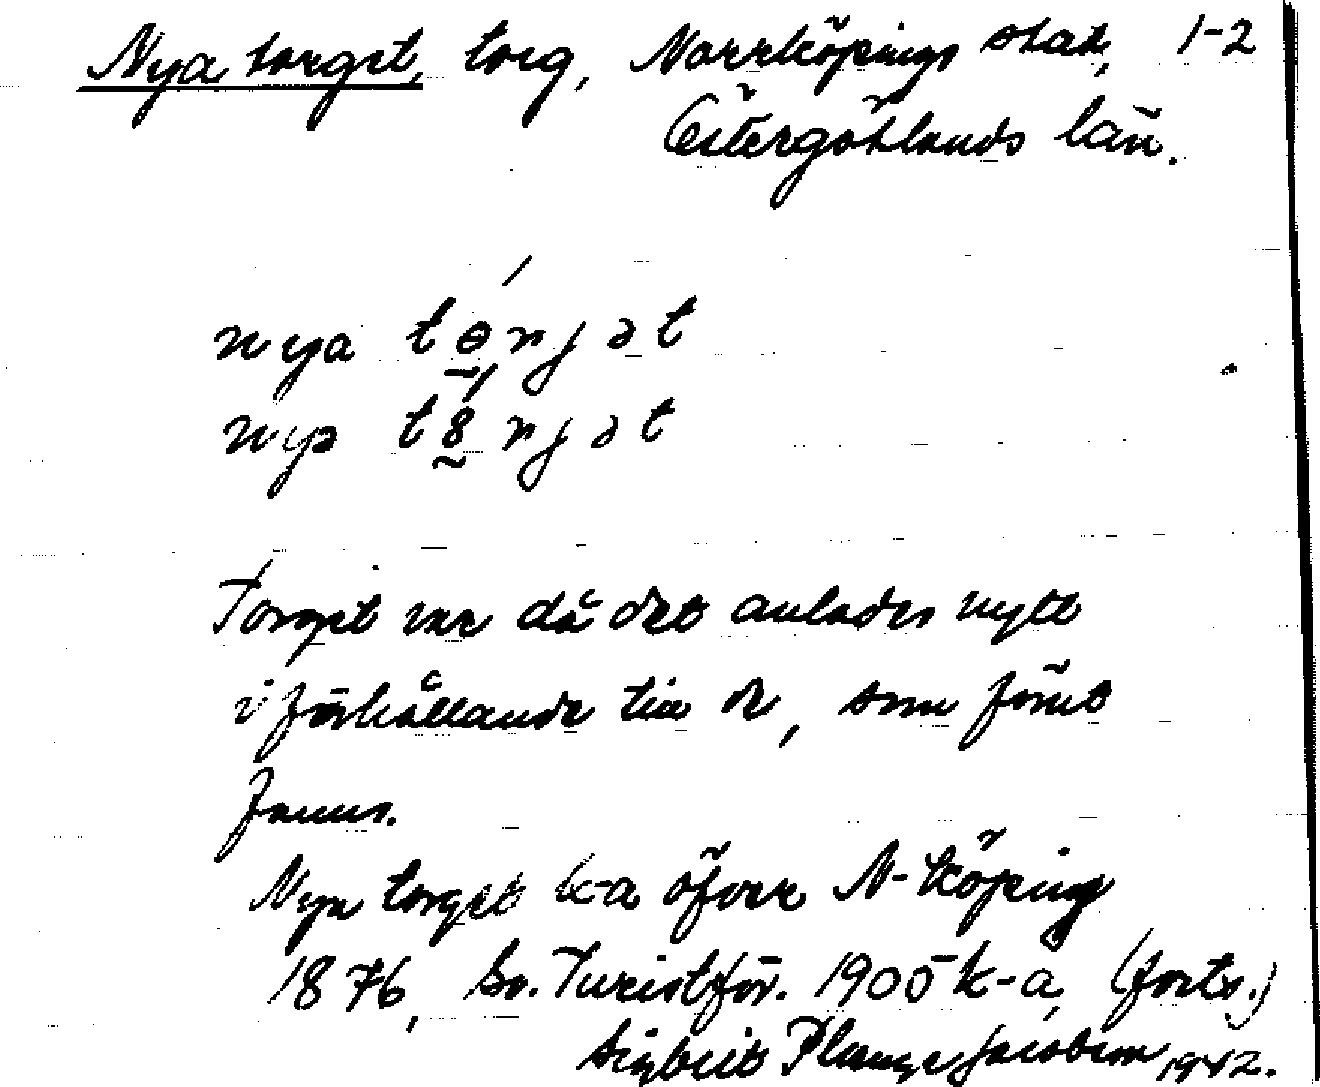 Nya torget, torg, Norrköpings stad, 1-2
Östergötlands län.
nya tɵrjət
nyə t8rjət
Torget var då det anlades nytt
i förhållande till de, som förut
funnos.
Nya torget k-a öfver N-köping
1876, Sv. Turistför. 1905 k-a, (forts.)
Sigbrit Plange Jacobson 1942.